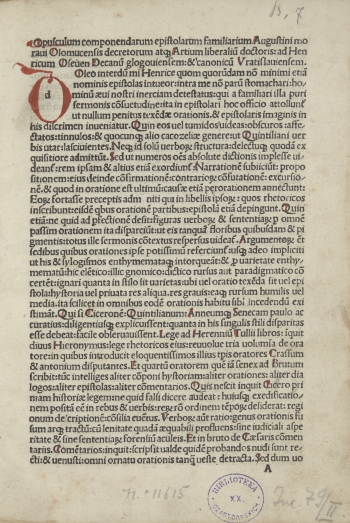 15, 7
Opusculum componendarum epistolarum familiarium Augustini mo
raui Olomucensis decretorum atqꝫ Artium liberaliũ doctoris: ad Hen
ricum Decanũ glogouiensem: & canonicũ Vratislauiensem.
Oleo interdũ mi Henrice quom quorũdam nõ minimi etiã
nominis epistolas intueor: intra me nõ parũ stomachari: ho
minũ aeui nostri inerciam detestatus: qui a familiari illa puri
sermonis cõsuetudine: ita in epistolari hoc officio
ut nullum penitus texẽdæ orationis: & epistolaris imaginis in
his discrimen inueniatur. Quin eos uel tumidos uideas: obscuros affe
ctatos: tinnulos: & quocunqꝫ alio genere: ut Quintiliani uer
bis utar: lasciuientes. Neqꝫ id solũ uerborꝫ structura: delectuqꝫ quodã ex
quisitiore admittũt. Sed ut numeros oẽs absolute dictionis implesse ui
deant: rem ipsam & alius etiã exordiunt Narrationẽ subiiciũt: propo
sitionem: cõfirmationẽ: cõtrarioꝫ: cõfutationẽ: excursio
nẽ: & quod in oratione est ultimũ: causæ etiã perorationem annectunt:
Eoqꝫ fortasse preceptis adm niti qui in libellis ipsoꝫ: quos rhetoricos
inscribunt: eisdẽ qbus orationẽ partibus: epistolã etiã depingunt. Quin
etiã: ne quid ad desit: figuras uerborꝫ & sententiarꝫ p omnẽ
passim orationem ita disparciũt: ut eis tanquã floribus quibusdam & pi
gmentis: totus ille sermonis cõtextus respersus uideat. Argumentorꝫ et
sedibus quibus orationes ipse potissimũ referciunt usqꝫ adeo implicit
ut his & syllogismos enthymemataqꝫ & p uarietate enthy
mematũ: hic elẽtico: illic gnomico: dictico rursus aut paradigmatico cõ
certẽt: ignari quanta in stilo sit uarietas: ubi uel oratio texẽda sit uel epi
stola: hystoria uel priuata res aliqua. res grauis: eaqꝫ rursum humilis uel
media: ita scilicet in omnibus eodẽ orationis habitu sibi incedendũ exi
stimãt. Qui si Ciceronẽ: Quintilianum: Anneumqꝫ Senecam paulo ac
curatius: diligentiusqꝫ explicuissent: quanta in his singulis stili disparitas
esse debeat: facile obseruauissent. Lege ad Herenniũ Tullii libros: quic
dsius Hieronymus: lege rhetoricos eius: reuolue tria uolumia de ora
tore: in quibus introducit eloquentissimos illius tpis oratores Crassum
& antonium disputantes. Et quartũ oratorem quẽ iã senex ad Brutum
scribit: dic intelliges aliter cõponi hystoriam: aliter orationes: aliter dia
logos: aliter epistolas: aliter cõmentarios. Quis nescit inquit Cicero pri
mam historiæ legem: ne quid falsi dicere audeat: huiusqꝫ exedificatio
nem positã eẽ in rebus & uerbis: regꝫ ordinem tẽpoꝫ desiderat: regi
onum cõsilia euẽtus. Verborꝫ aũt rationem genus orationis fu
sum arqꝫ tractũ: cũ lenitate quadã æquabili profluens: sine iudiciali aspe
ritate & sine sententiarꝫ forensiũ aculeis. Et in bruto de Cæsaris cõmen
tariis. Cõmẽtarios: inquit: scripsit ualde quidẽ probandos nudi sunt re
cti: & uenusti: omni ornatu orationis tanqꝫ ueste detracta. Sed dum uo
A
BIBLIOTEKA
XX.
CZARTORYSKICH
Inc. 79/II